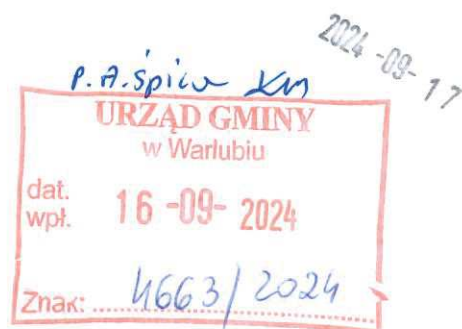 2024 -09- 17
P. A. Śpica
URZĄD GMINY
w Warlubiu
dat.
wpł. 16 -09- 2024
Znak: 4663/2024